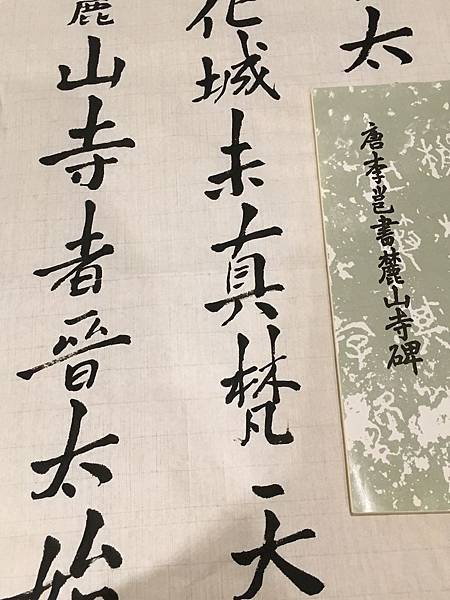 太
唐李邕書麓山寺碑
化城未真梵天
麓山寺者晉太始